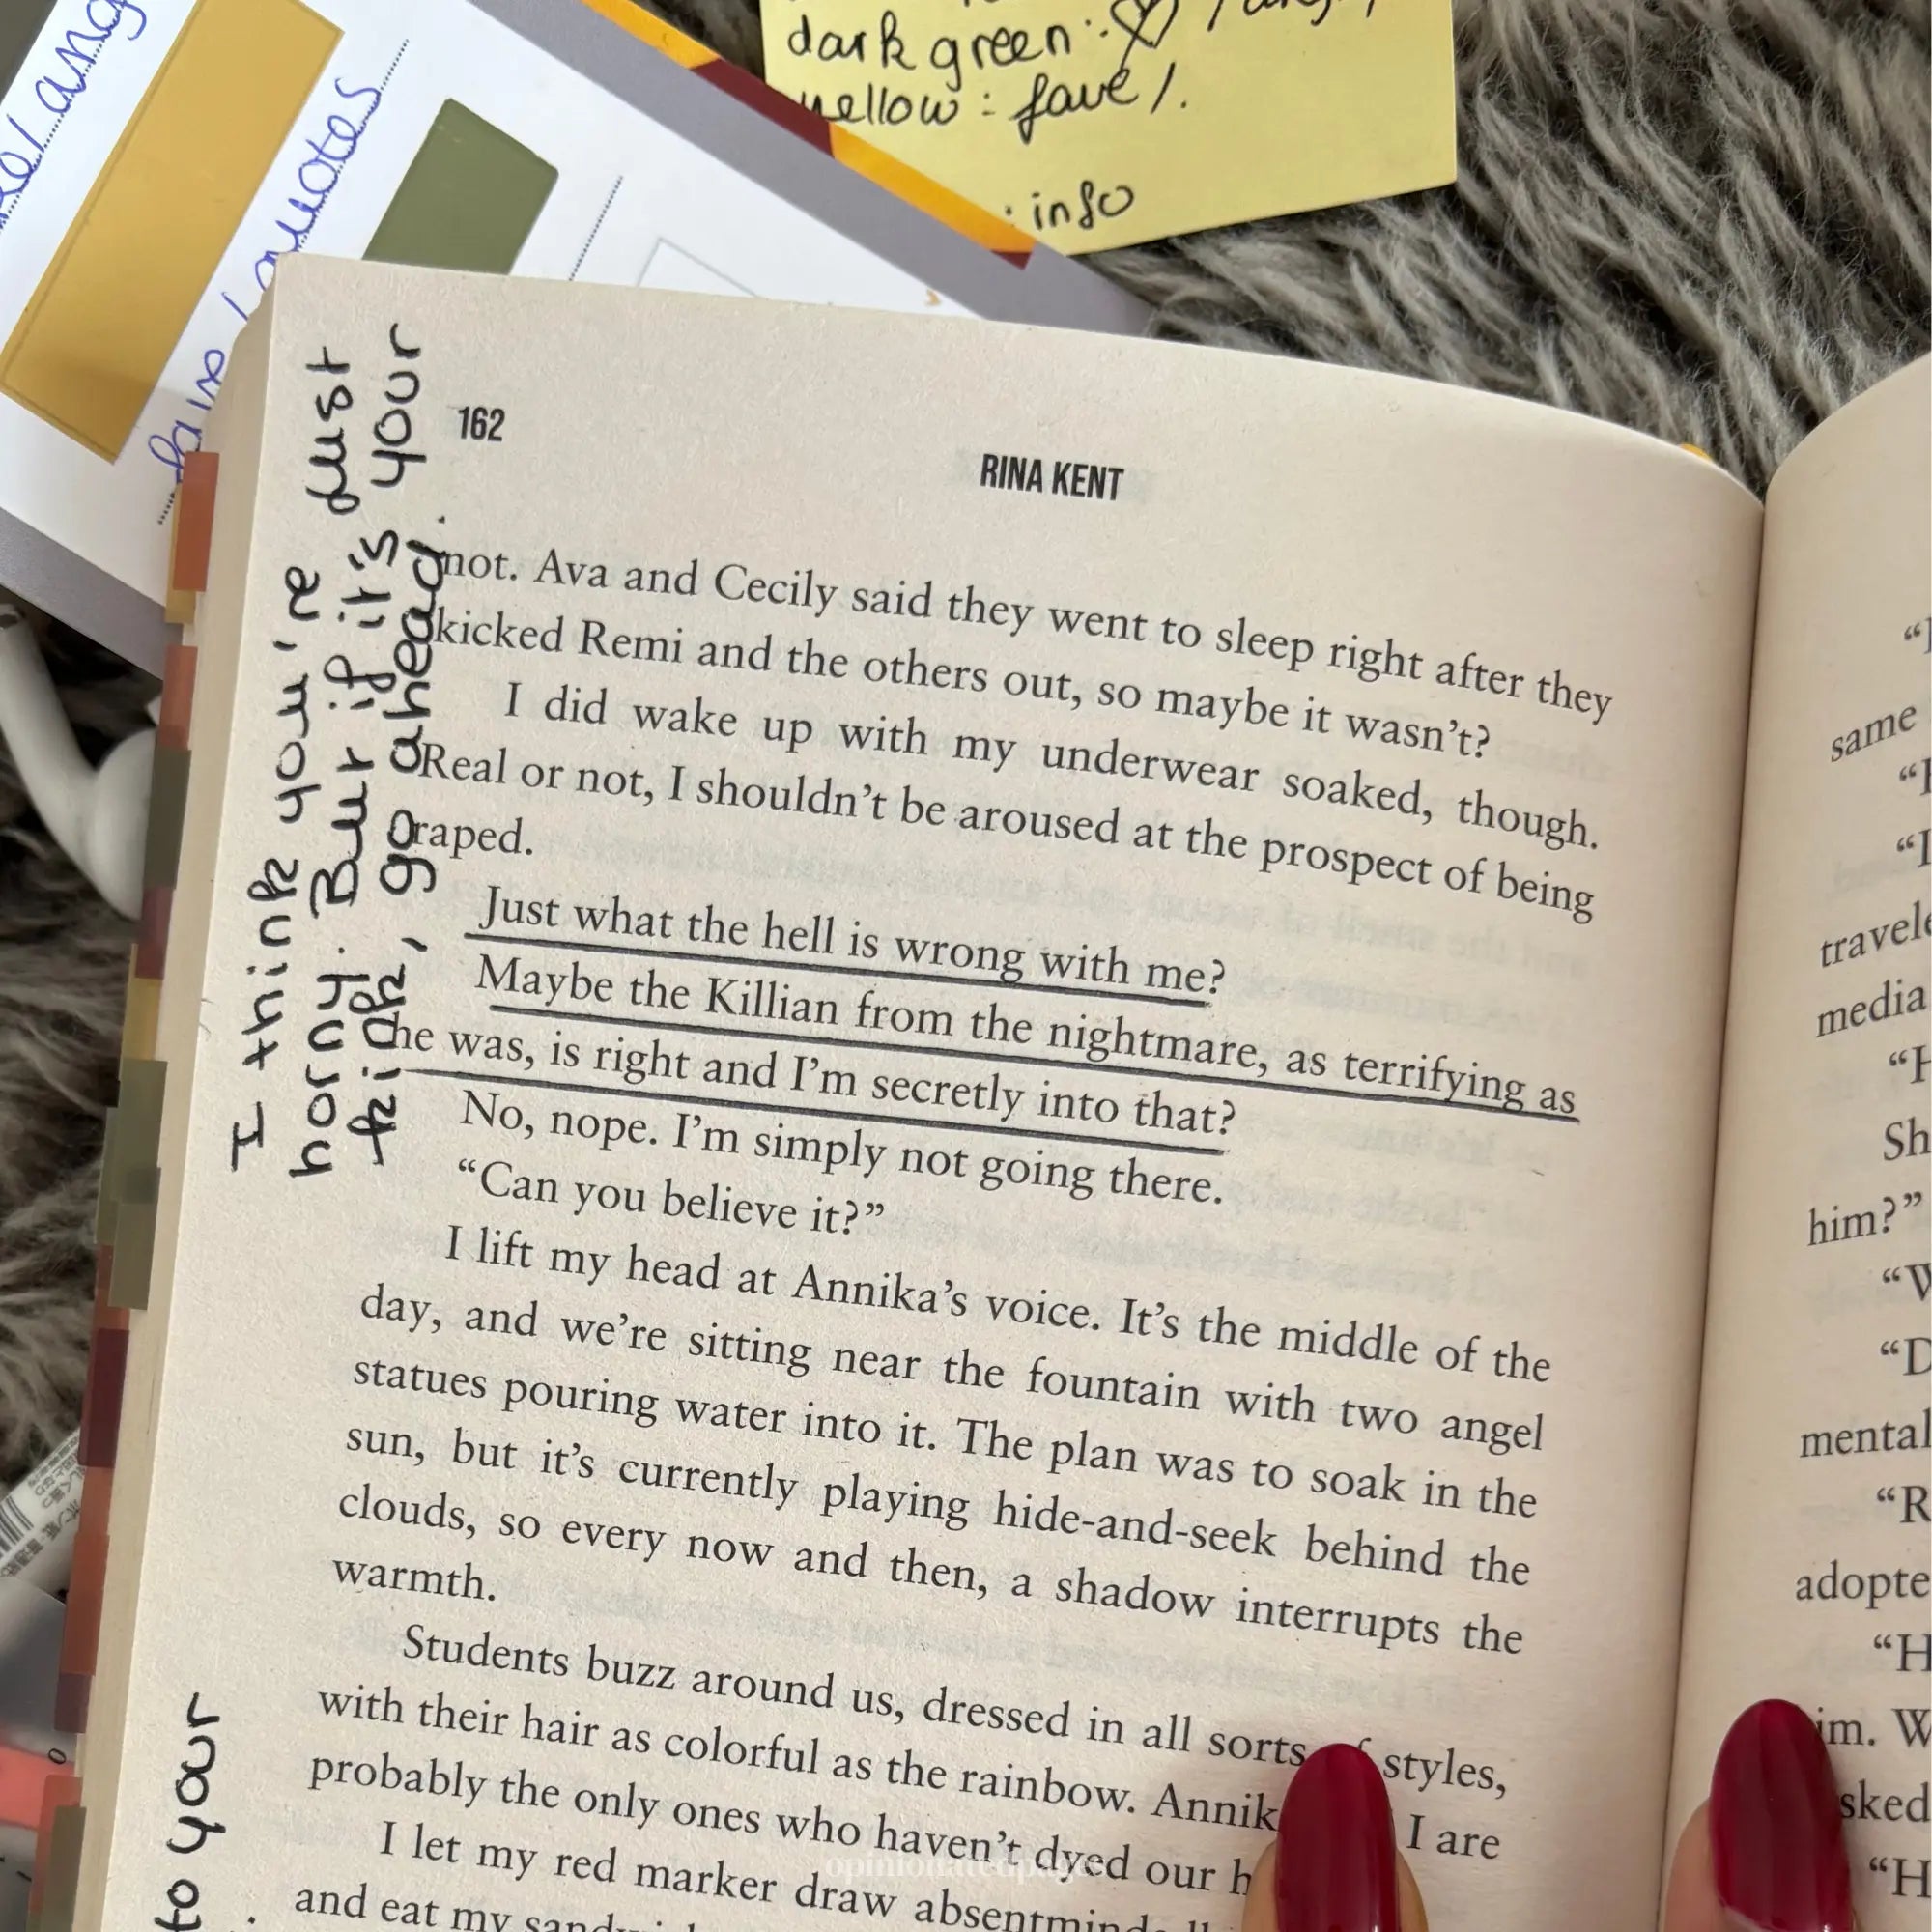 dark green :
yellow : fave /.
: info
fave / quotes
I think you're
horny. But if it's just
kink, go ahead. your
162
RINA KENT
not. Ava and Cecily said they went to sleep right after they
kicked Remi and the others out, so maybe it wasn’t?
I did wake up with my underwear soaked, though.
Real or not, I shouldn’t be aroused at the prospect of being
raped.
Just what the hell is wrong with me?
Maybe the Killian from the nightmare, as terrifying as
he was, is right and I’m secretly into that?
No, nope. I’m simply not going there.
“Can you believe it?”
I lift my head at Annika’s voice. It’s the middle of the
day, and we’re sitting near the fountain with two angel
statues pouring water into it. The plan was to soak in the
sun, but it’s currently playing hide-and-seek behind the
clouds, so every now and then, a shadow interrupts the
warmth.
Students buzz around us, dressed in all sorts styles,
with their hair as colorful as the rainbow. Annik I are
probably the only ones who haven’t dyed our h
I let my red marker draw
and eat my
to your
same
travele
media
Sh
him?”
mental
adopte
im. W
sked
opinionatedpages